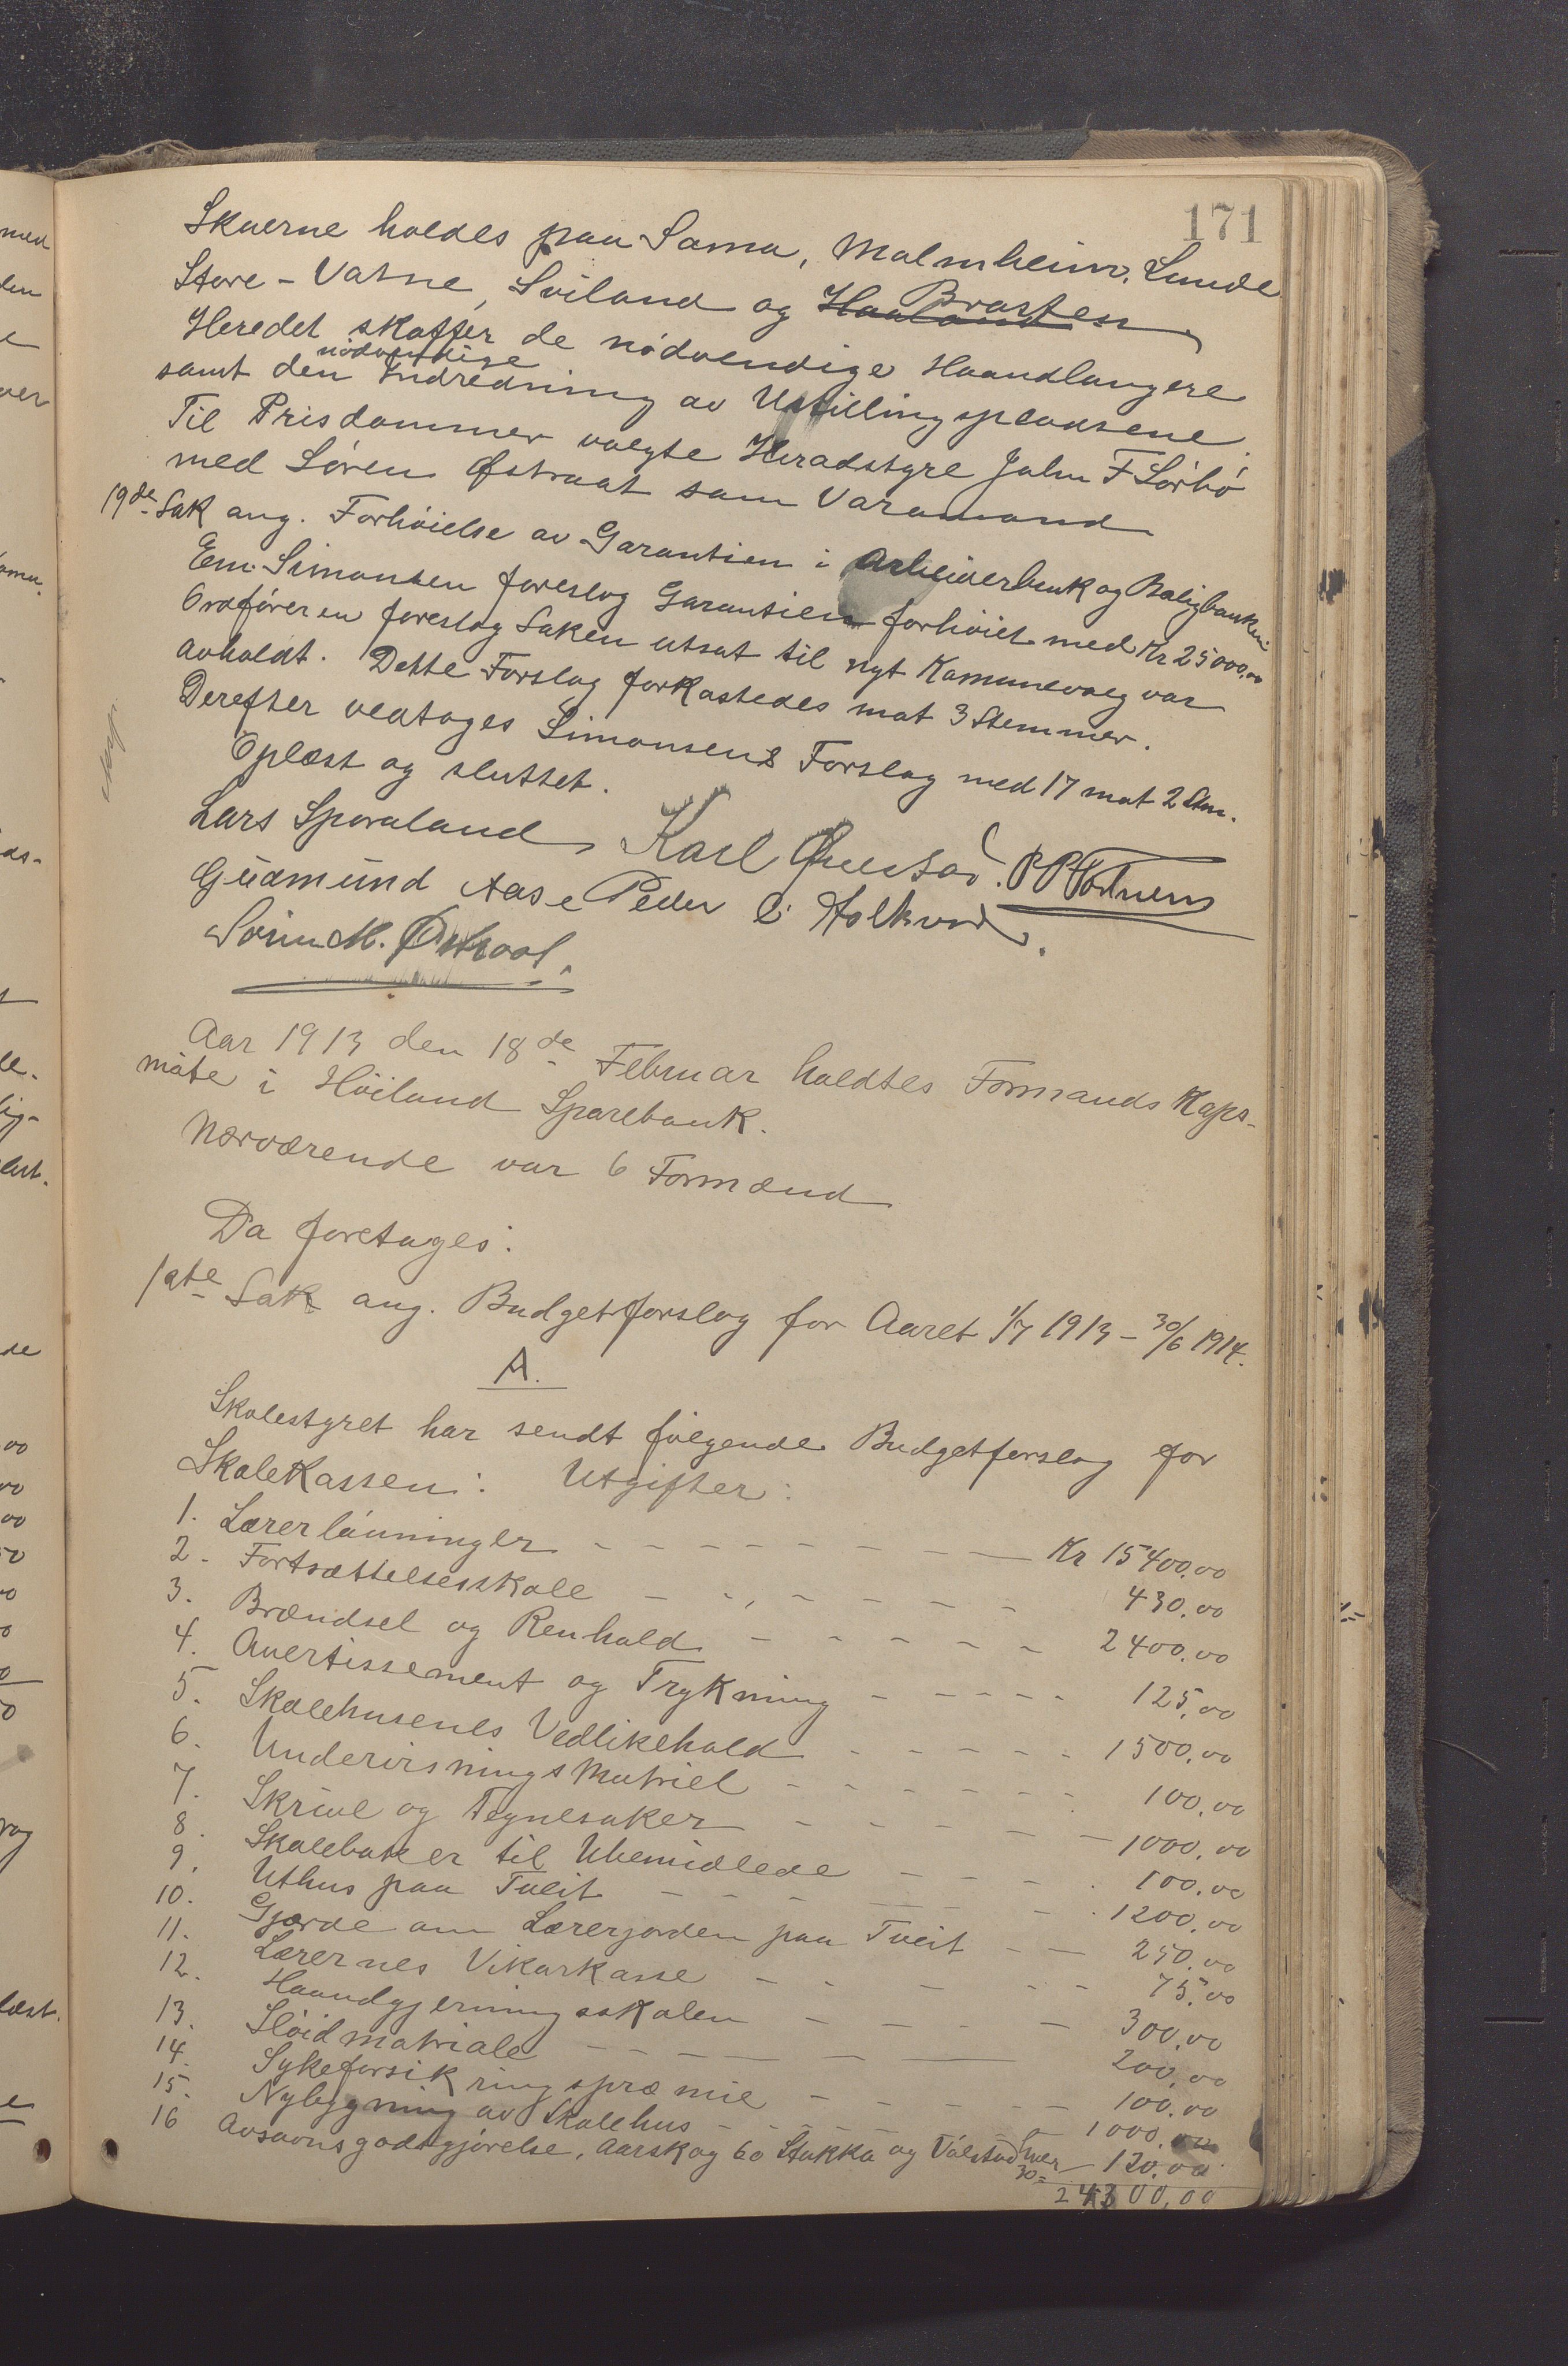 171
Skuerne holdes paa Soma, Malmheim, Lunde
Store-Vatne, Sviland og Haaland Brasten
Heredet skaffer de nödvendige Haandlangere
samt den nödvendige Indredning av Utstillingspladsene.
Til Prisdommer valgte Heradstyre John F Sörbö
med Sören Østraat som Varamand
19de Sak ang. Forhöielse av Garantien i Arbeiderbruk og Boligbanken
Em. Simonsen foreslog Garantien forhöiet med Kr 25000,00
Ordföreren foreslog Saken utsat til nyt Komunevalg var
avholdt. Dette Forslag forkastedes mot 3 Stemmer.
Derefter vedtages Simonsens Forslag med 17 mot 2 Stm.
Oplæst og sluttet.
Lars Sporaland Karl
Gudmund Aase Peder
Sören M. Østraat.
Aar 1913 den 18de Februar holdtes Formandskaps-
möte i Höiland Sparebank.
Nærværende var 6 Formænd
Da foretages:
1ste Sak ang. Budgetforslag for Aaret 1/7 1913 - 30/6 1914.
A.
Skolestyret har sendt fölgende Budgetforslag for
Skolekassen: Utgifter:
1. Lærerlönninger Kr 15400,00
2. Fortsættelsesskole 430,00
3. Brændsel og Renhold 2400,00
4. Avertissement og Trykning 125,00
5. Skolehusenes Vedlikehold 1500,00
6. Undervisnings Matriel 100,00
7. Skrive og Tegnesaker 1000,00
8. Skoleböker til Ubemidlede 100,00
9. Uthus paa Tveit 1200,00
10. Gjærde om Lærerjorden paa Tveit 250,00
11. Lærernes Vikarkasse 75,00
12. Haandgjerningsskolen 300,00
13. Slöidmatriale 200,00
14. Sykeforsikringspræmie 100,00
15. Nybygning av Skolehus 1000,00
16 Avsavnsgodtgjörelse, Aarskog 60 Stokka og Tölstad hver 30= 120,00
24300,00